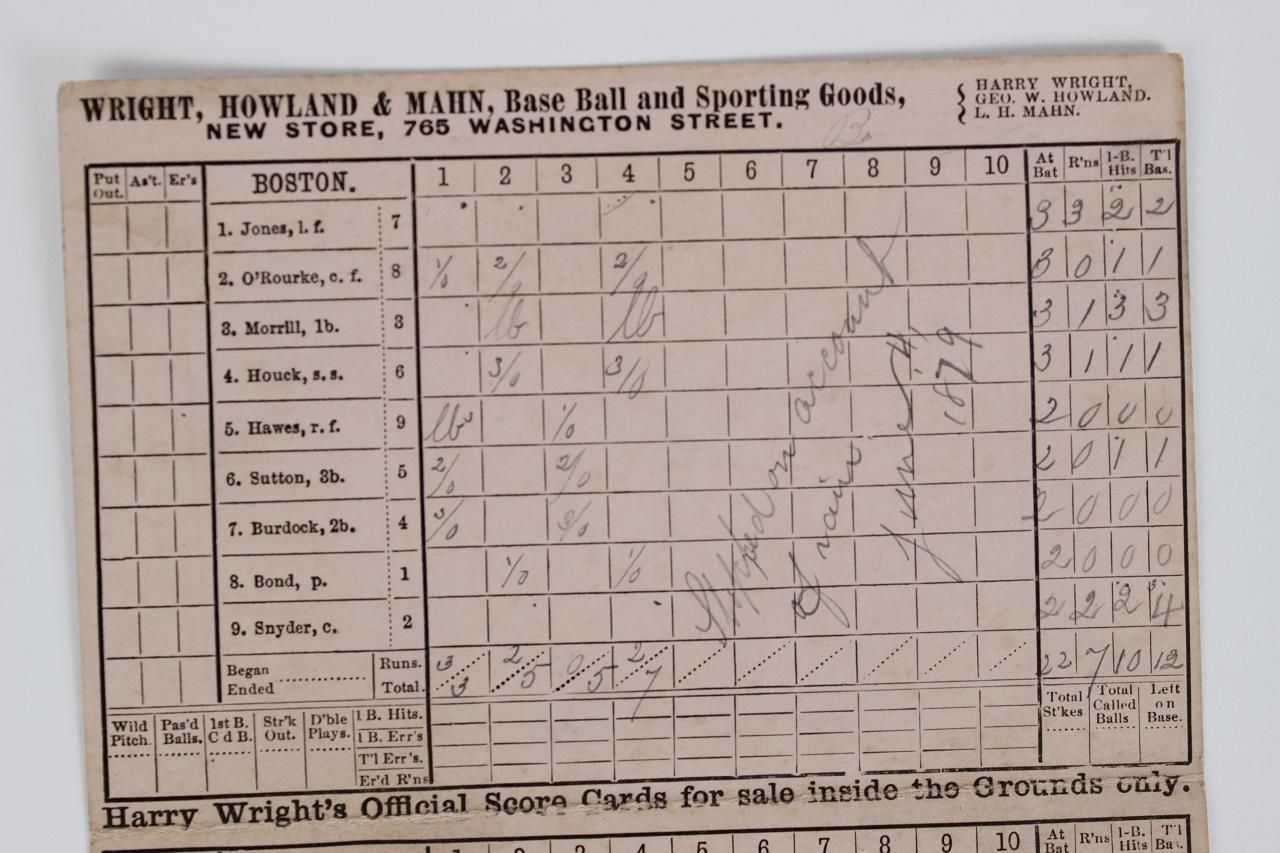 WRIGHT, HOWLAND & MAHN, Base Ball and Sporting Goods,
NEW STORE, 765 WASHINGTON STREET.
{ HARRY WRIGHT,
GEO. W. HOWLAND.
L. H. MAHN.
Put Out. As't. Er's BOSTON. 1 2 3 4 5 6 7 8 9 10 At Bat R'ns 1-B. Hits T'l Bas.
1. Jones, l. f. 7 3 3 2 2
2. O'Rourke, c. f. 8 1/0 2/ 2/ 3 0 1 1
3. Morrill, 1b. 3 lb lb 3 1 3 3
4. Houck, s. s. 6 3/0 3/0 3 1 1 1
5. Hawes, r. f. 9 lb 1/0 2 0 0 0
6. Sutton, 3b. 5 2/0 2/0 2 0 1 1
7. Burdock, 2b. 4 3/0 3/0 2 0 0 0
8. Bond, p. 1 1/0 1/0 2 0 0 0
9. Snyder, c. 2 2 2 2 4
Began
Ended
Runs. 3 2 0 2
Total. 3 5 5 7 22 7 10 12
Stopped on account
of rain
June 4,
1879
Wild Pitch. Pas'd Balls. 1st B. C d B. Str'k Out. D'ble Plays. 1 B. Hits. Total St'kes Total Called Balls Left on Base.
1 B. Err's
T'l Err's.
Er'd R'ns
Harry Wright's Official Score Cards for sale inside the Grounds only.
1 2 3 4 5 6 7 8 9 10 At Bat R'ns 1-B. Hits T'l Bas.